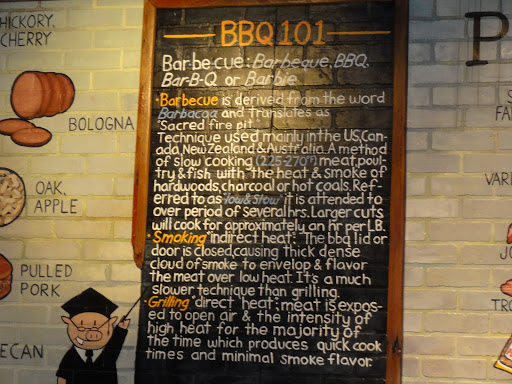 HICKORY,
CHERRY
BOLOGNA
OAK,
APPLE
PULLED
PORK
PECAN
BBQ 101
Barbecue: Barbeque, BBQ,
Bar-B-Q or Barbie
•Barbecue is derived from the word
Barbacoa and Translates as
"Sacred fire pit"
Technique used mainly in the US, Can-
ada, New Zealand & Australia. A method
of slow cooking (225-270°F) meat, poul-
try & fish with "the heat & smoke of
hardwoods, charcoal or hot coals. Ref-
erred to as "low & slow" it is attended to
over period of several hrs. Larger cuts
will cook for approximately an hr per LB.
•Smoking "indirect heat: "The bbq lid or
door is closed, causing thick dense
cloud of smoke to envelop & flavor
the meat over low heat. It's a much
slower technique than grilling.
•Grilling "direct "heat: meat is expos-
ed to open air & the intensity of
high heat for the majority of
the time which produces quick cook
times and minimal smoke flavor.
P
FA
VAR
JO
TRO